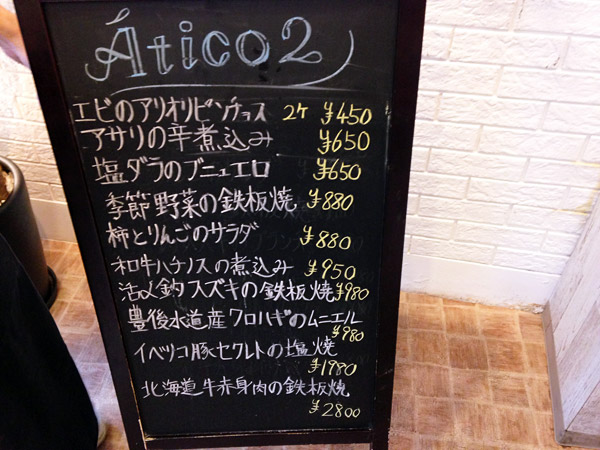 Ático2
エビのアリオリピンチョス 2ケ ¥450
アサリの辛煮込み ¥650
塩ダラのブニュエロ ¥650
季節野菜の鉄板焼 ¥880
柿とりんごのサラダ ¥880
和牛ハチノスの煮込み ¥950
活〆釣スズキの鉄板焼 ¥980
豊後水道産クロハギのムニエル
¥980
イベリコ豚セクレトの塩焼
¥1980
北海道牛赤身肉の鉄板焼
¥2800